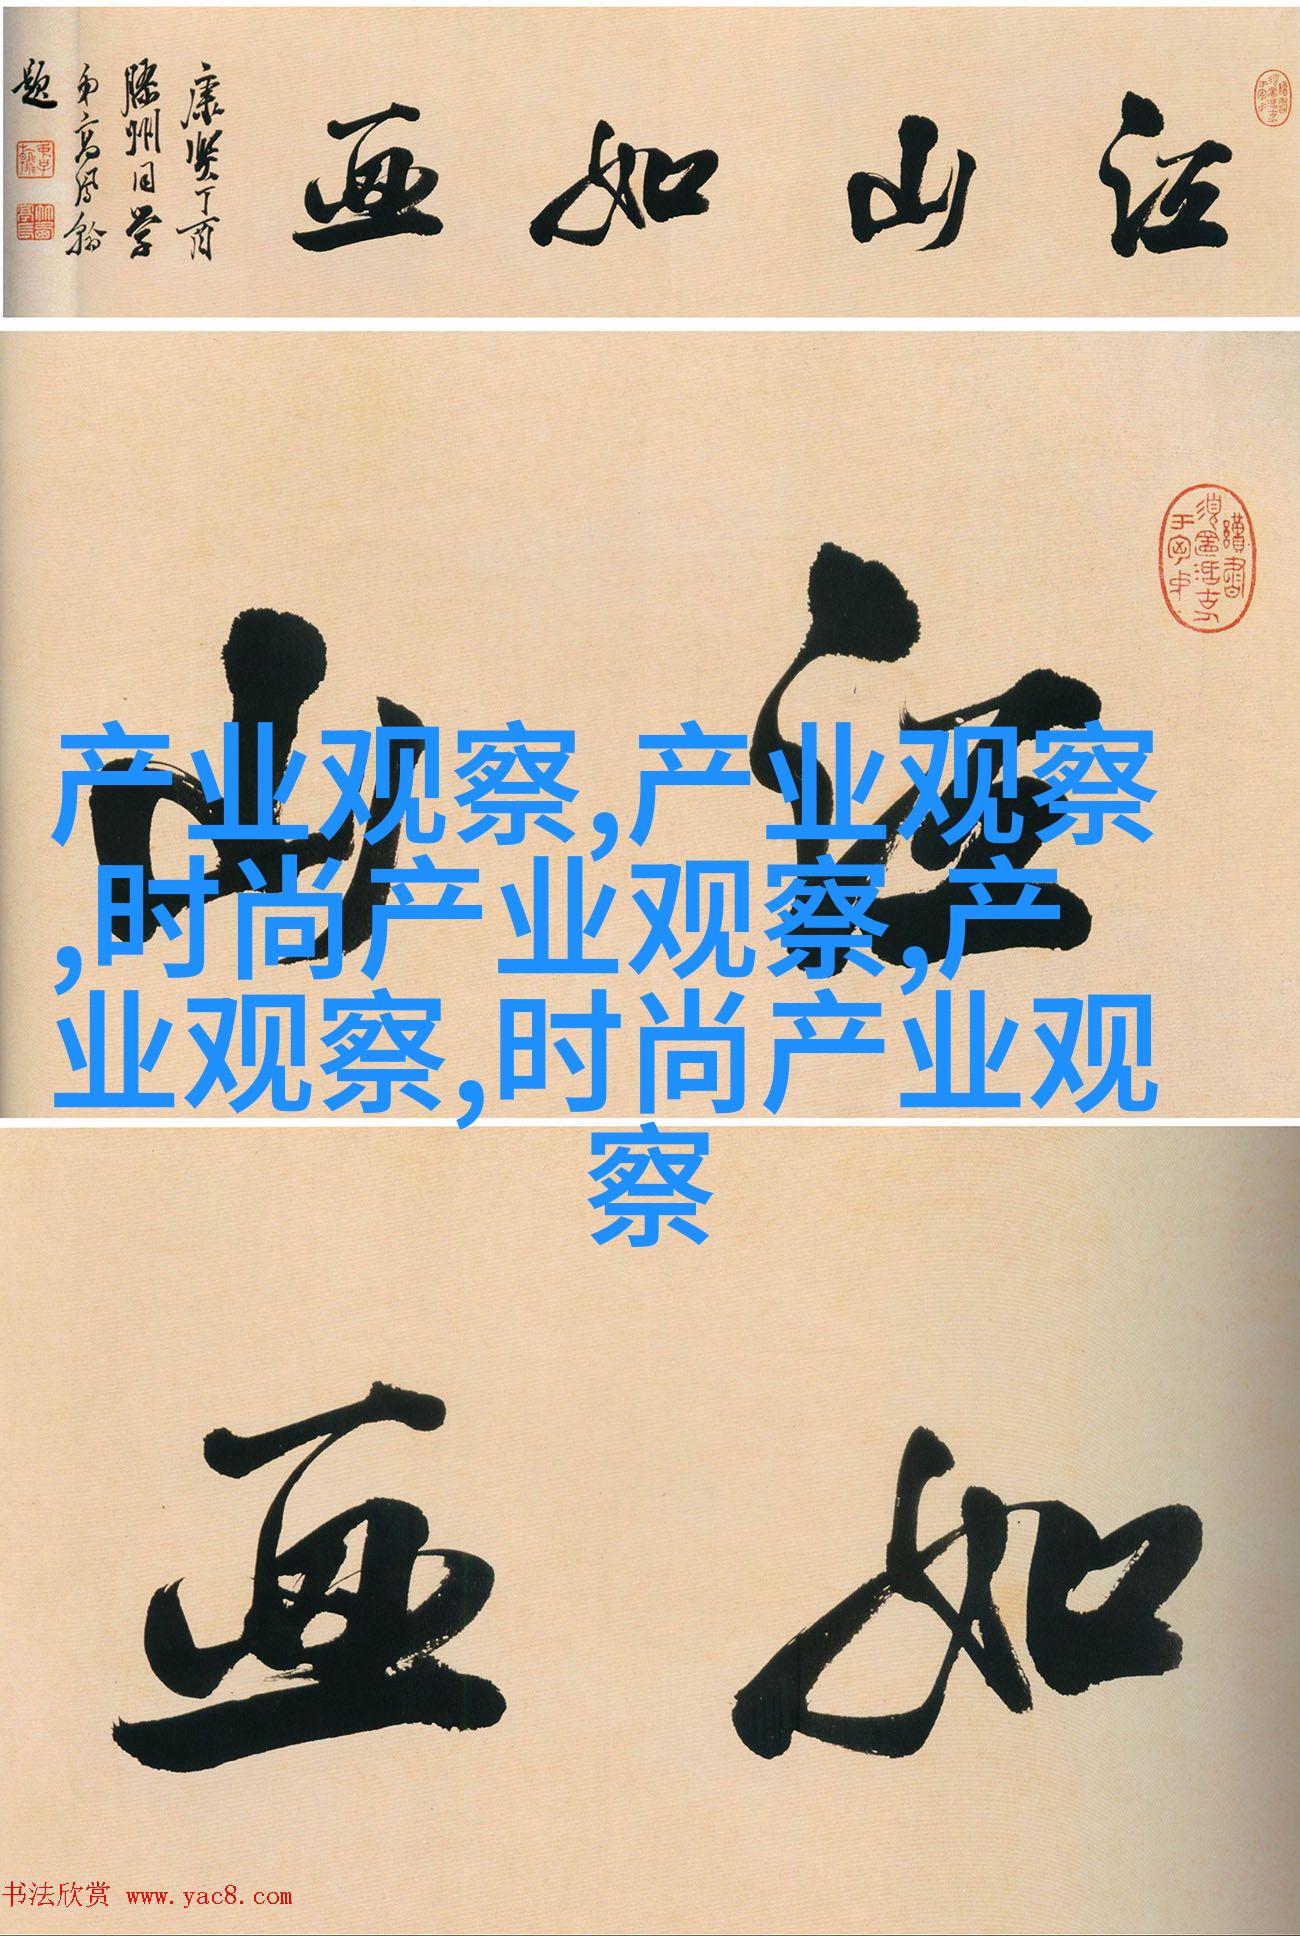 江山如画
康熙丁酉
膠州同学
弟高凤翰
题
江山
产业观察,产业观察
,时尚产业观察,产
业观察,时尚产业观
察
如画
书法欣赏 www.yac8.com